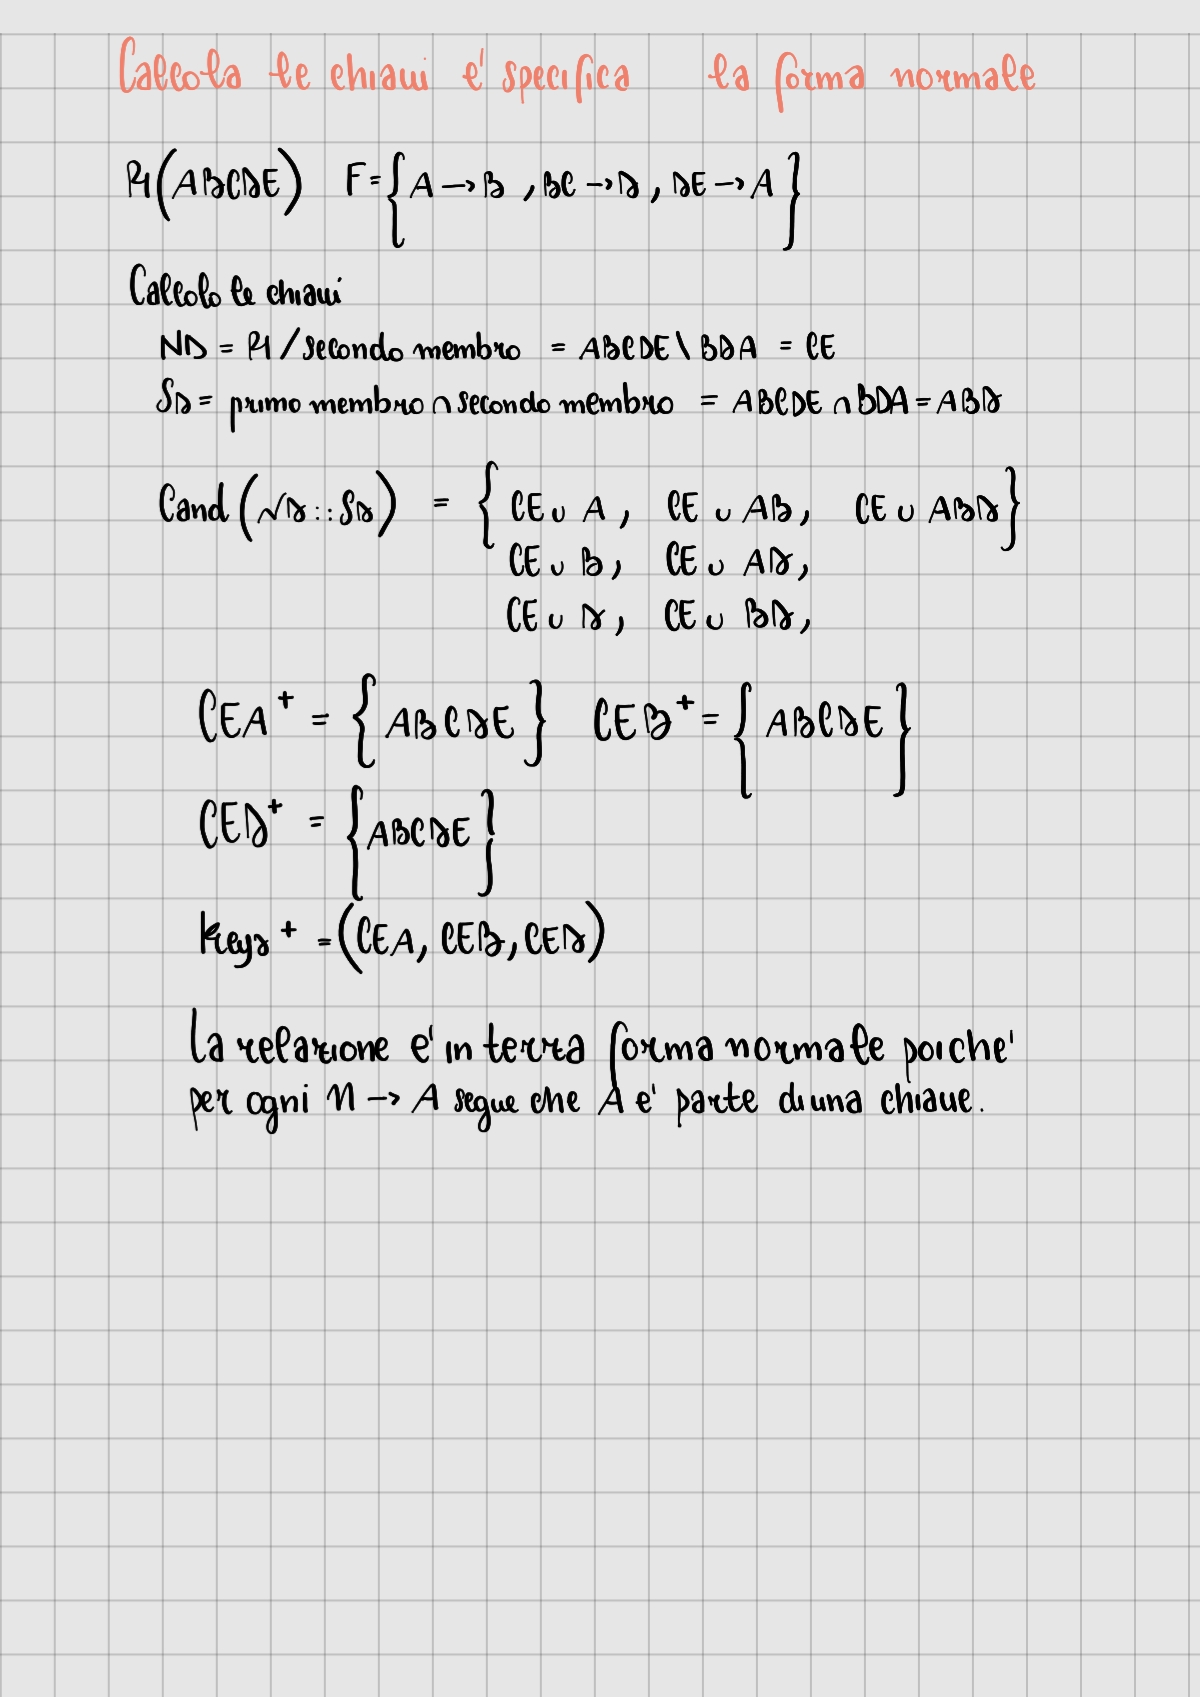 Calcola le chiavi e' specifica la forma normale
R1(ABCDE) F={A→B, BC→D, DE→A}
Calcolo le chiavi
ND = R1/secondo membro = ABCDE\BDA = CE
SD = primo membro∩secondo membro = ABCDE∩BDA=ABD
Cand(ND::SD) = {CE∪A, CE∪AB, CE∪ABD}
CE∪B, CE∪AD,
CE∪D, CE∪BD,
CEA⁺ = {ABCDE} CEB⁺ = {ABCDE}
CED⁺ = {ABCDE}
keys⁺ = (CEA, CEB, CED)
La relazione e' in terza forma normale poiche'
per ogni n→A segue che A e' parte di una chiave.